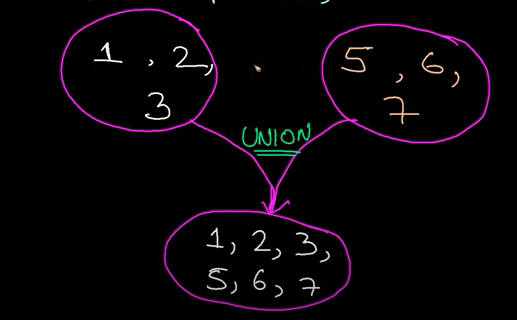 1, 2,
3
5, 6,
7
UNION
1, 2, 3,
5, 6, 7